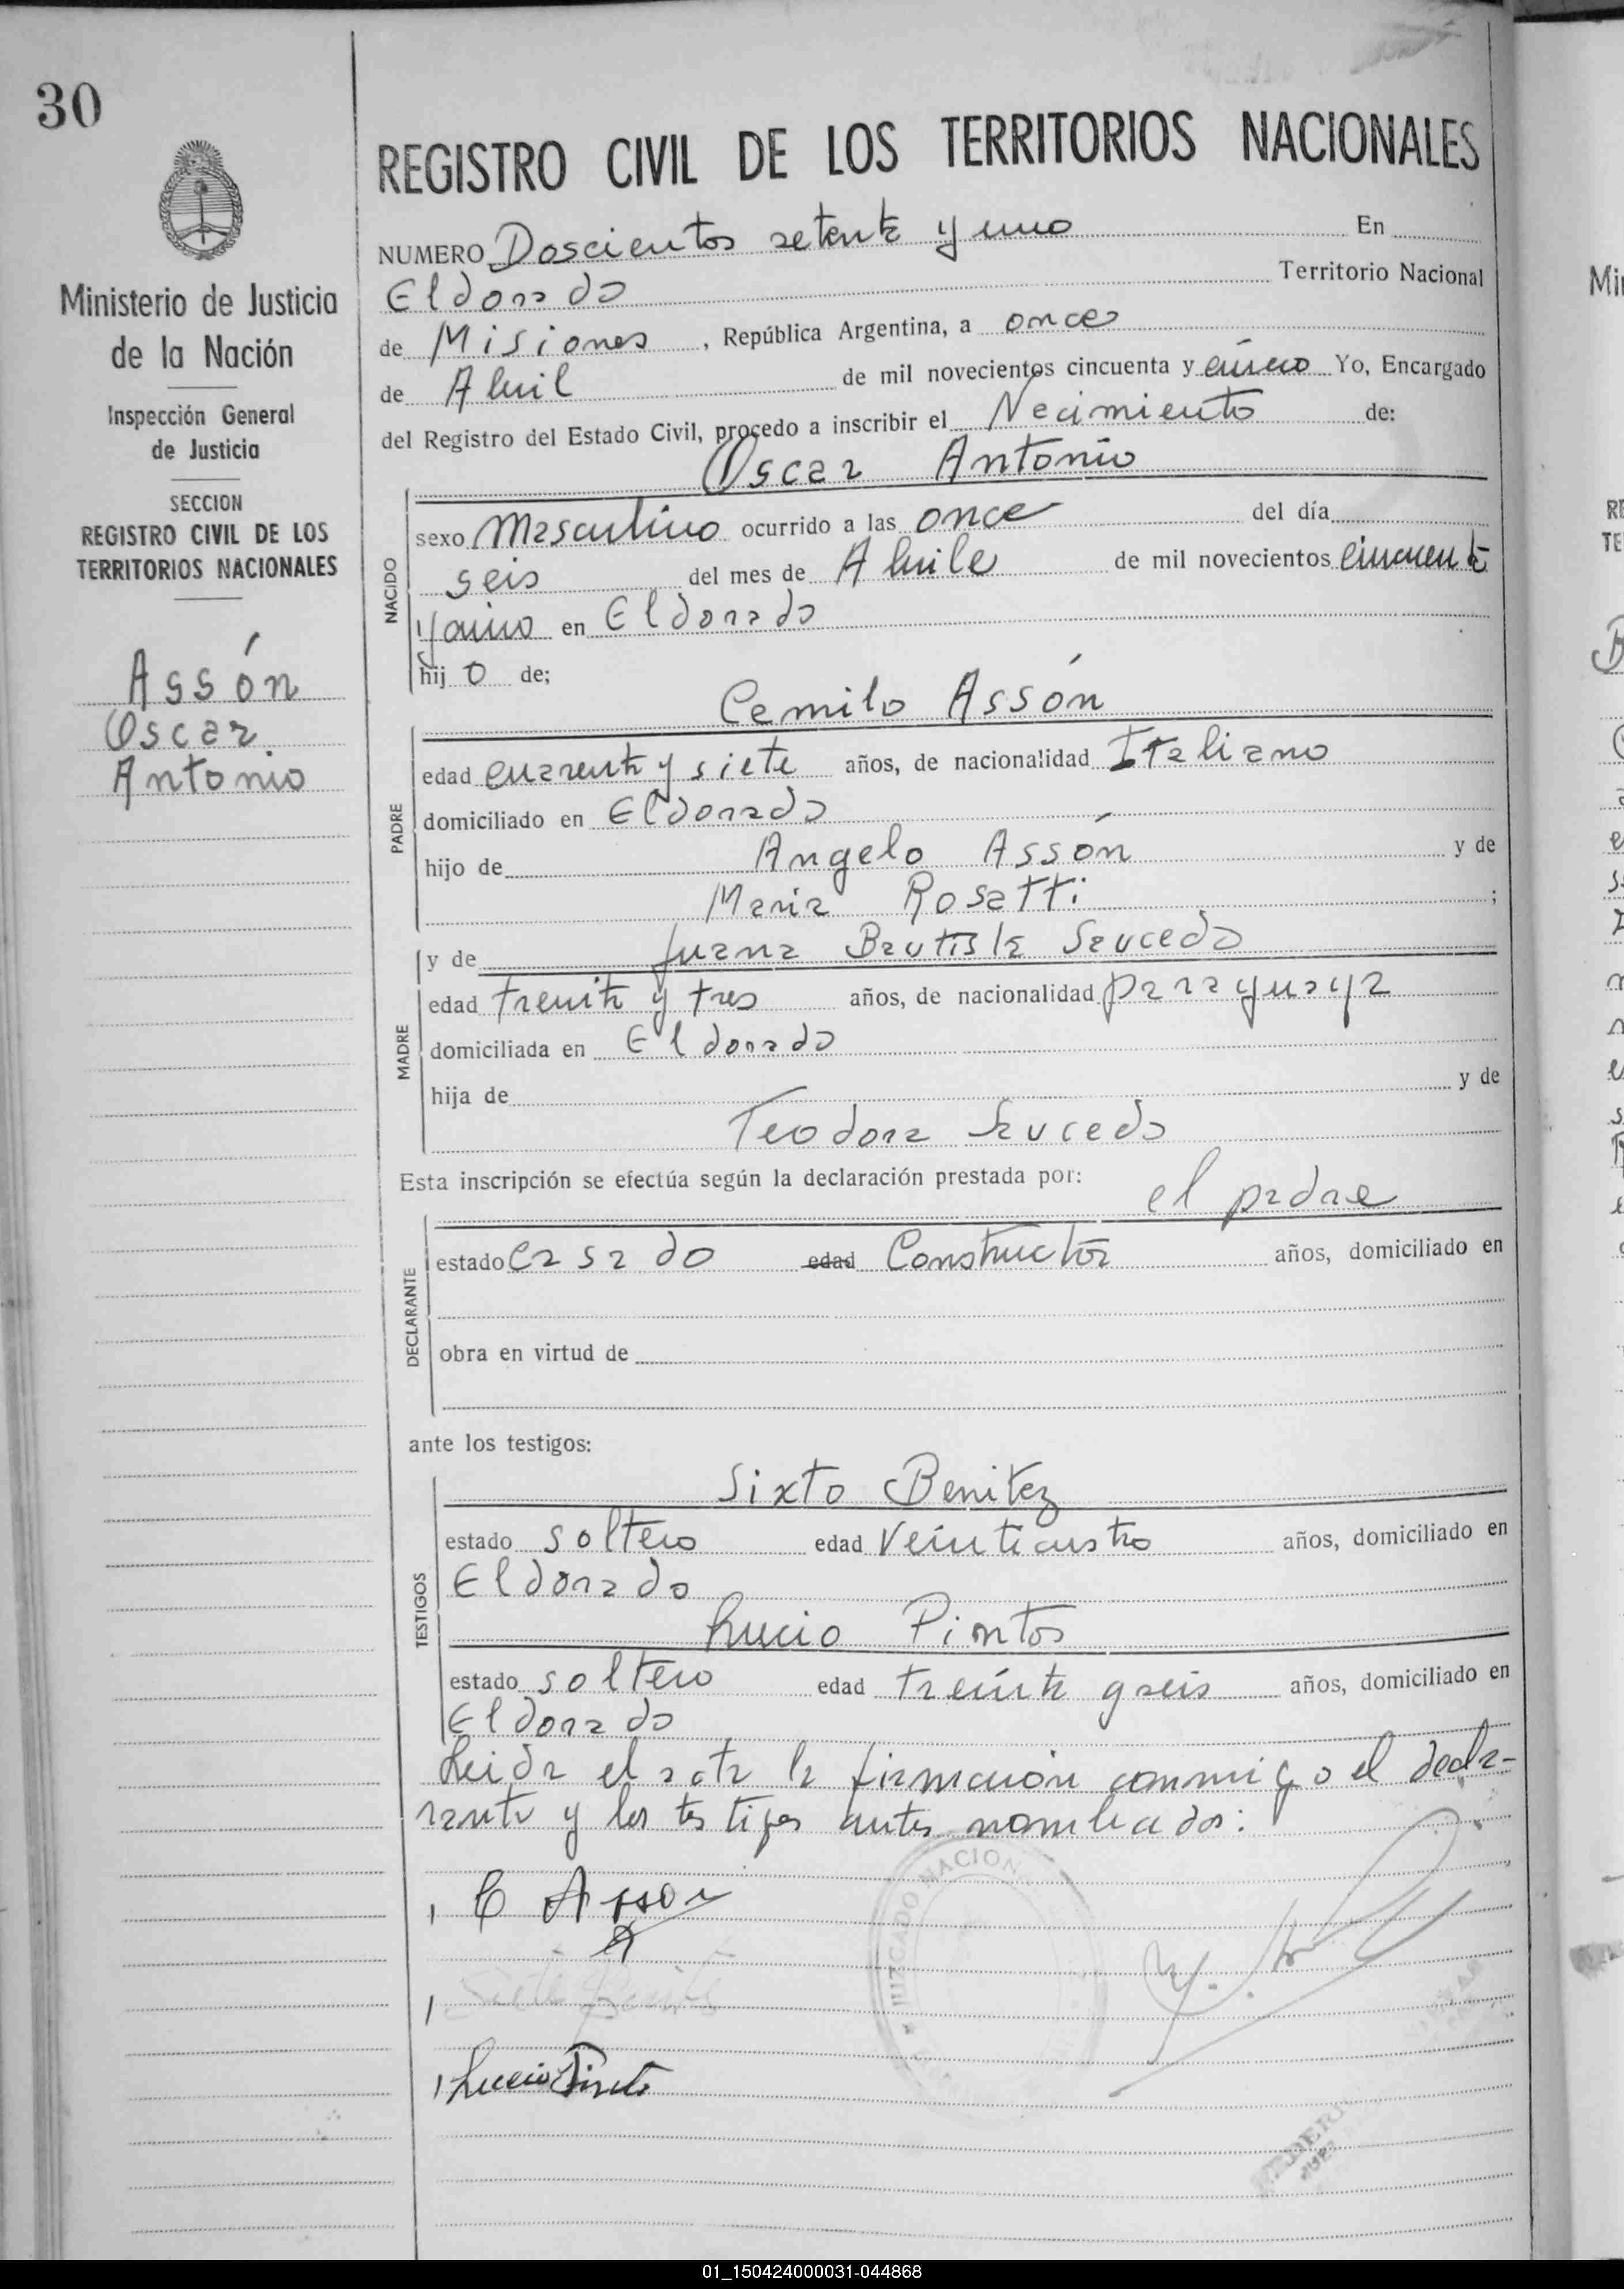 30
Ministerio de Justicia
de la Nación
Inspección General
de Justicia
SECCION
REGISTRO CIVIL DE LOS
TERRITORIOS NACIONALES
Assón
Oscar
Antonio
REGISTRO CIVIL DE LOS TERRITORIOS NACIONALES
NUMERO Doscientos setenta y uno En
Eldorado Territorio Nacional
de Misiones, República Argentina, a once
de Abril de mil novecientos cincuenta y cinco Yo, Encargado
del Registro del Estado Civil, procedo a inscribir el Nacimiento de:
Oscar Antonio
NACIDO
sexo Masculino ocurrido a las once del día
seis del mes de Abril de mil novecientos cincuenta
y cinco en Eldorado
hijo de;
Camilo Assón
PADRE
edad cuarenta y siete años, de nacionalidad Italiano
domiciliado en Eldorado
hijo de Angelo Assón y de
Maria Rosatti;
MADRE
y de Juana Bautista Saucedo
edad treinta y tres años, de nacionalidad paraguaya
domiciliada en Eldorado
hija de y de
Teodora Saucedo
Esta inscripción se efectúa según la declaración prestada por:
el padre
DECLARANTE
estado casado edad Constructor años, domiciliado en
obra en virtud de
ante los testigos:
TESTIGOS
Sixto Benitez
estado soltero edad veinticuatro años, domiciliado en
Eldorado
Lucio Pintos
estado soltero edad treinta y seis años, domiciliado en
Eldorado
Leida el acta la firmaron conmigo el decla-
rante y los testigos antes nombrados:
C Asson
Sixto Benitez
Lucio Pinto
JUZGADO NACION
JUEZ
01_150424000031-044868